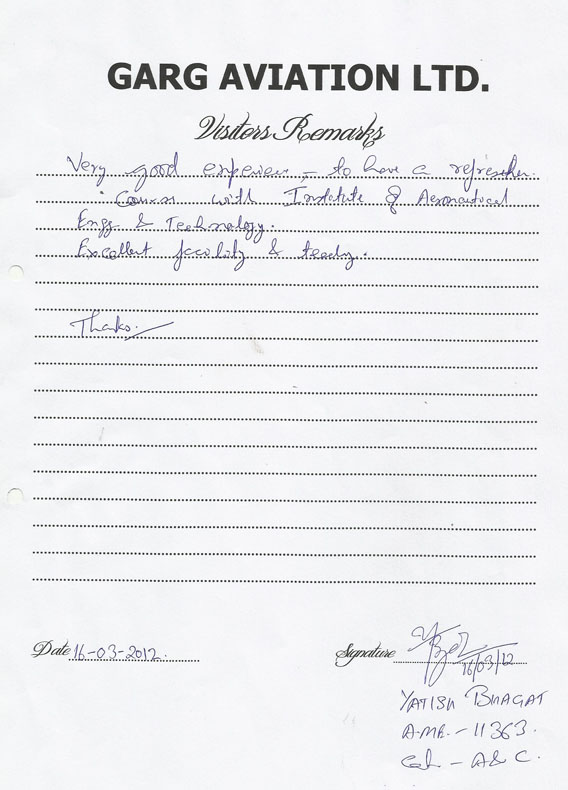 GARG AVIATION LTD.
Visitors Remarks
Very good experience - to have a refresher
Course with Institute of Aeronautical
Engg & Technology.
Excellent facility & teaching.
Thanks.
Date 16-03-2012
Signature
16/03/12
YATISH BHAGAT
A.ME. - 11363.
Cat - A & C.